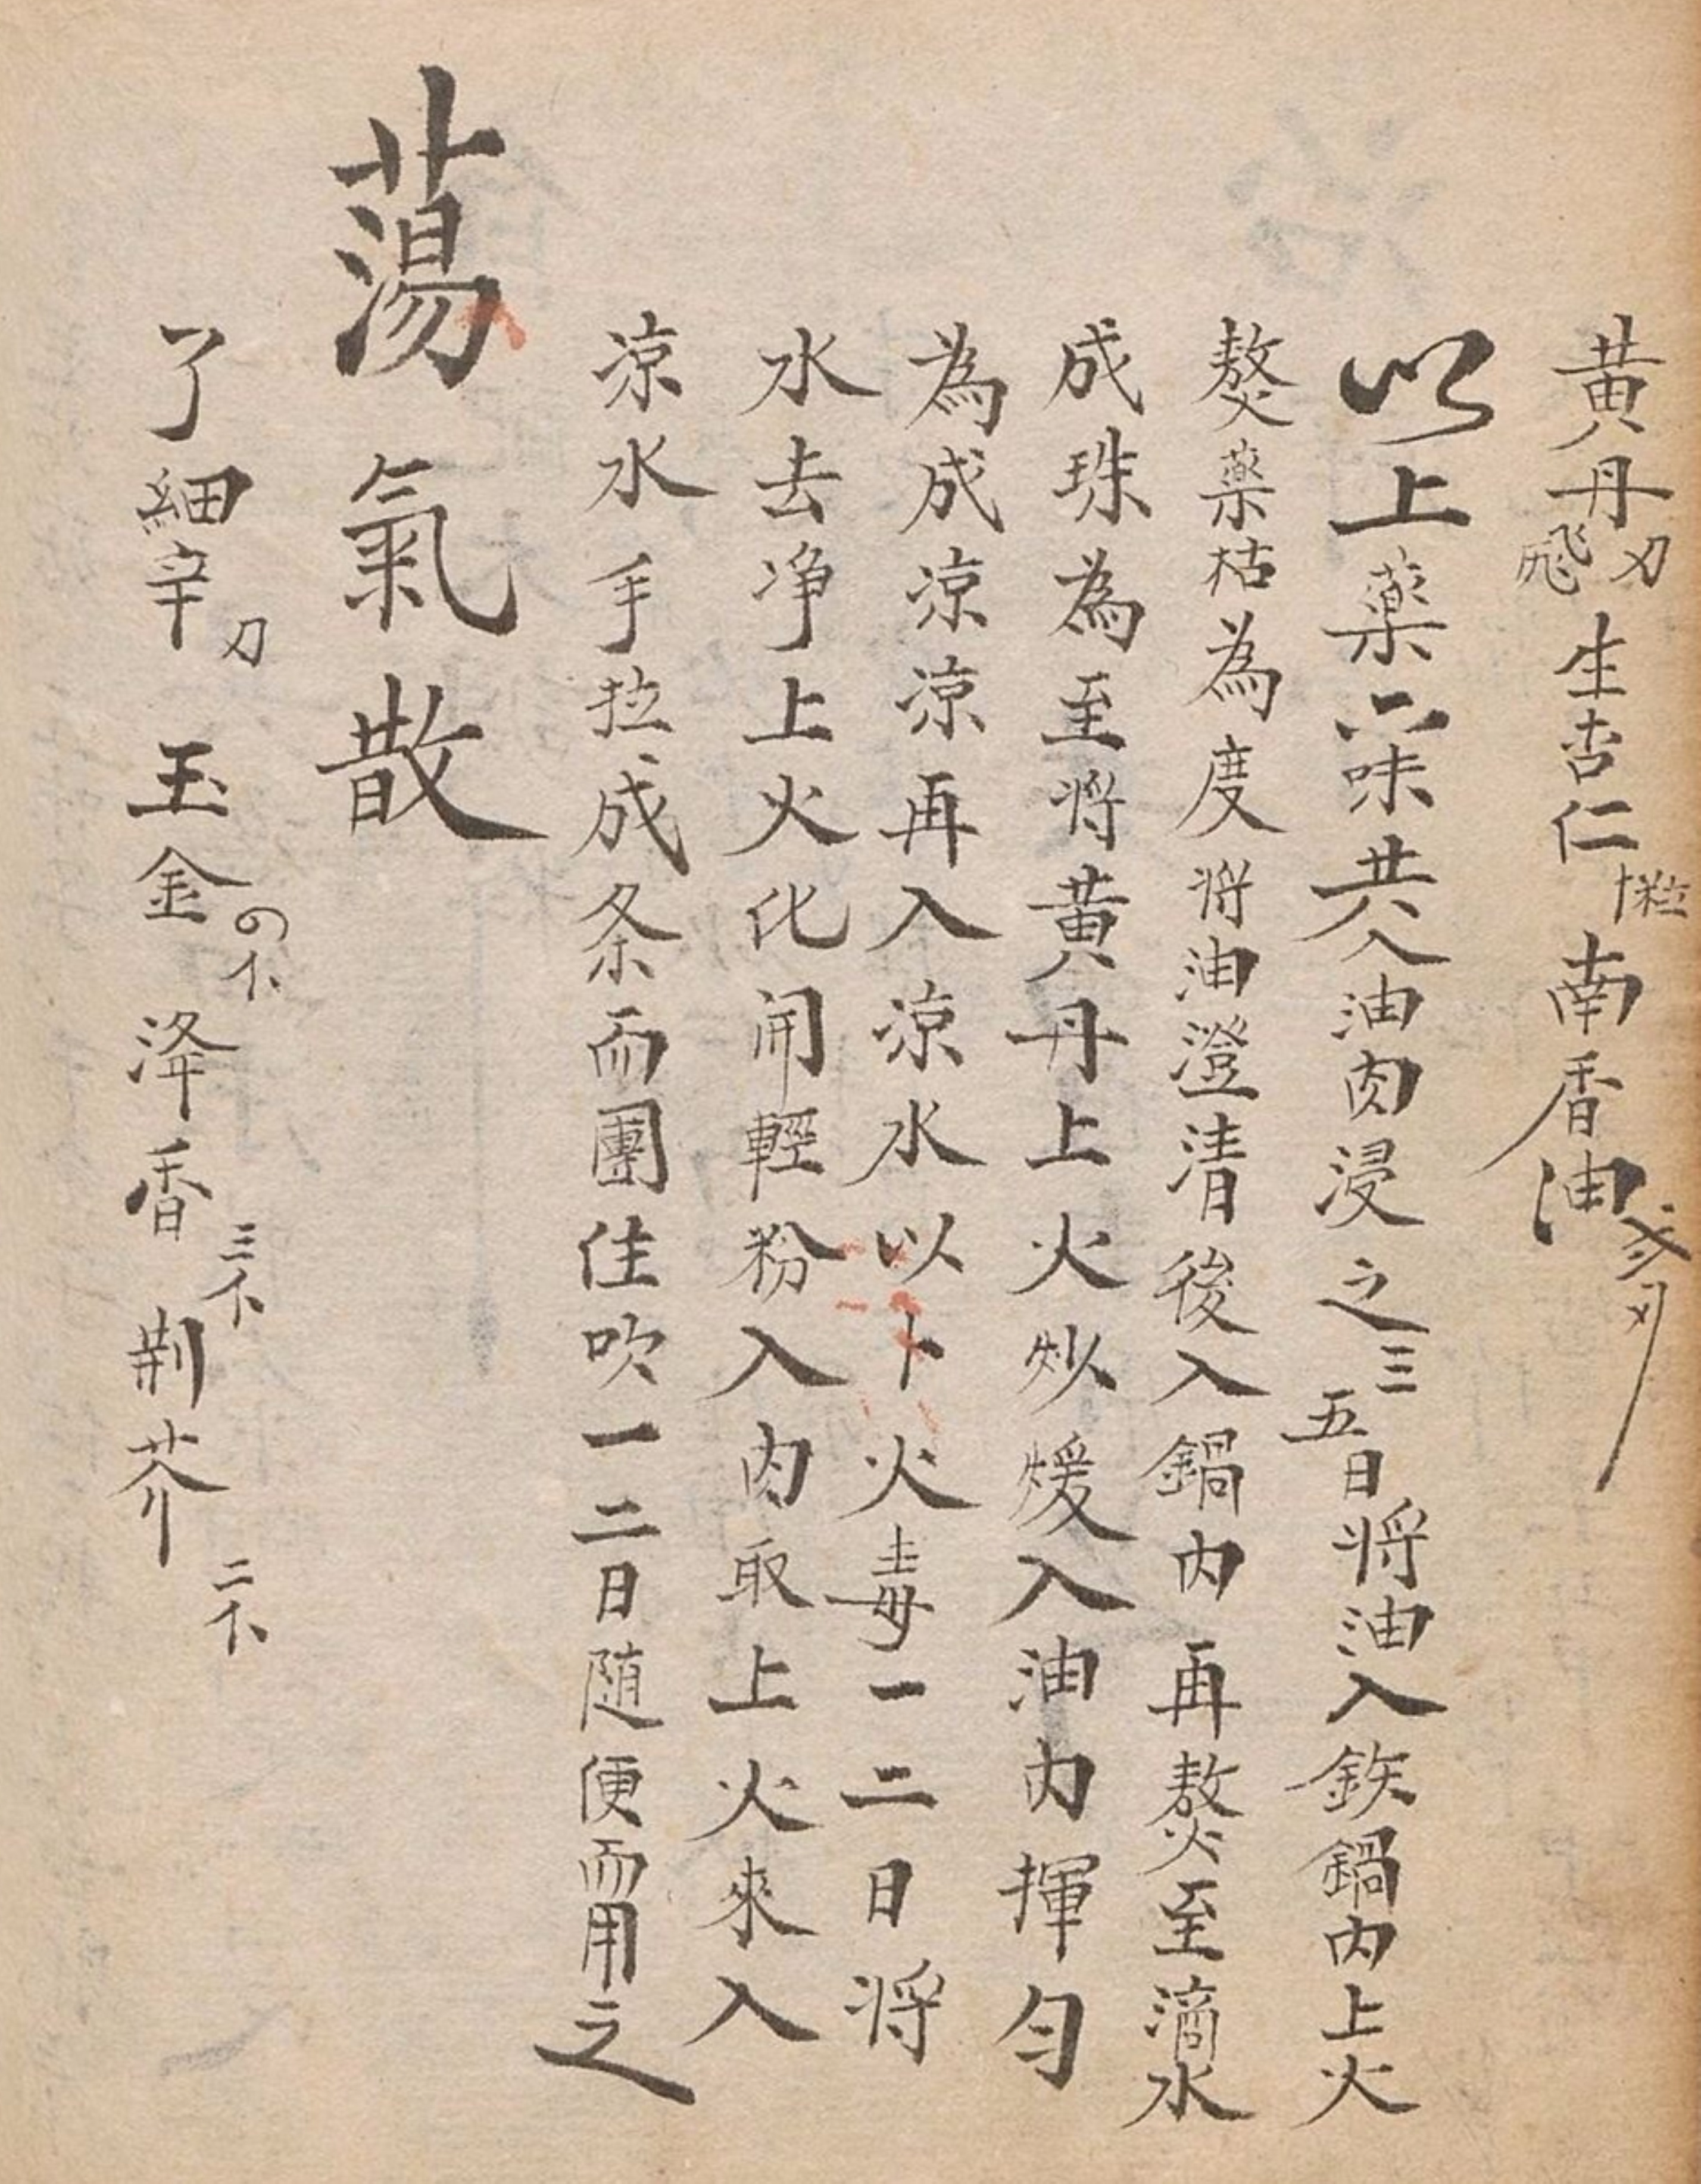 黄丹飛刃生杏仁十粒南香油
以上藥六味共入油肉浸之三五日將油入鉄鍋內上火
熬藥枯為度將油澄清後入鍋內再熬至滴水
成珠為至將黄丹上火炒煖入油內揮匀
為成凉凉再入凉水以卜火毒一二日將
水去净上火化開輕粉入肉取上火來入
凉水手拉成条而團住吹一二日随便而用之
蕩氣散
了細辛刀玉金泽香三个荆芥二个